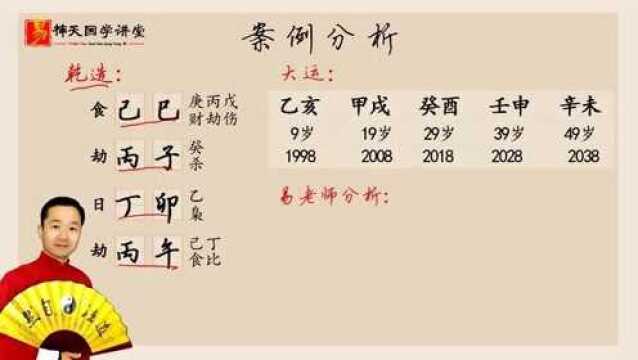 易 梆天国学讲堂
案例分析
乾造：
食 己 巳 庚丙戊
财劫伤
劫 丙 子 癸
杀
日 丁 卯 乙
枭
劫 丙 午 己丁
食比
大运：
乙亥 甲戌 癸酉 壬申 辛未
9岁 19岁 29岁 39岁 49岁
1998 2008 2018 2028 2038
易老师分析：